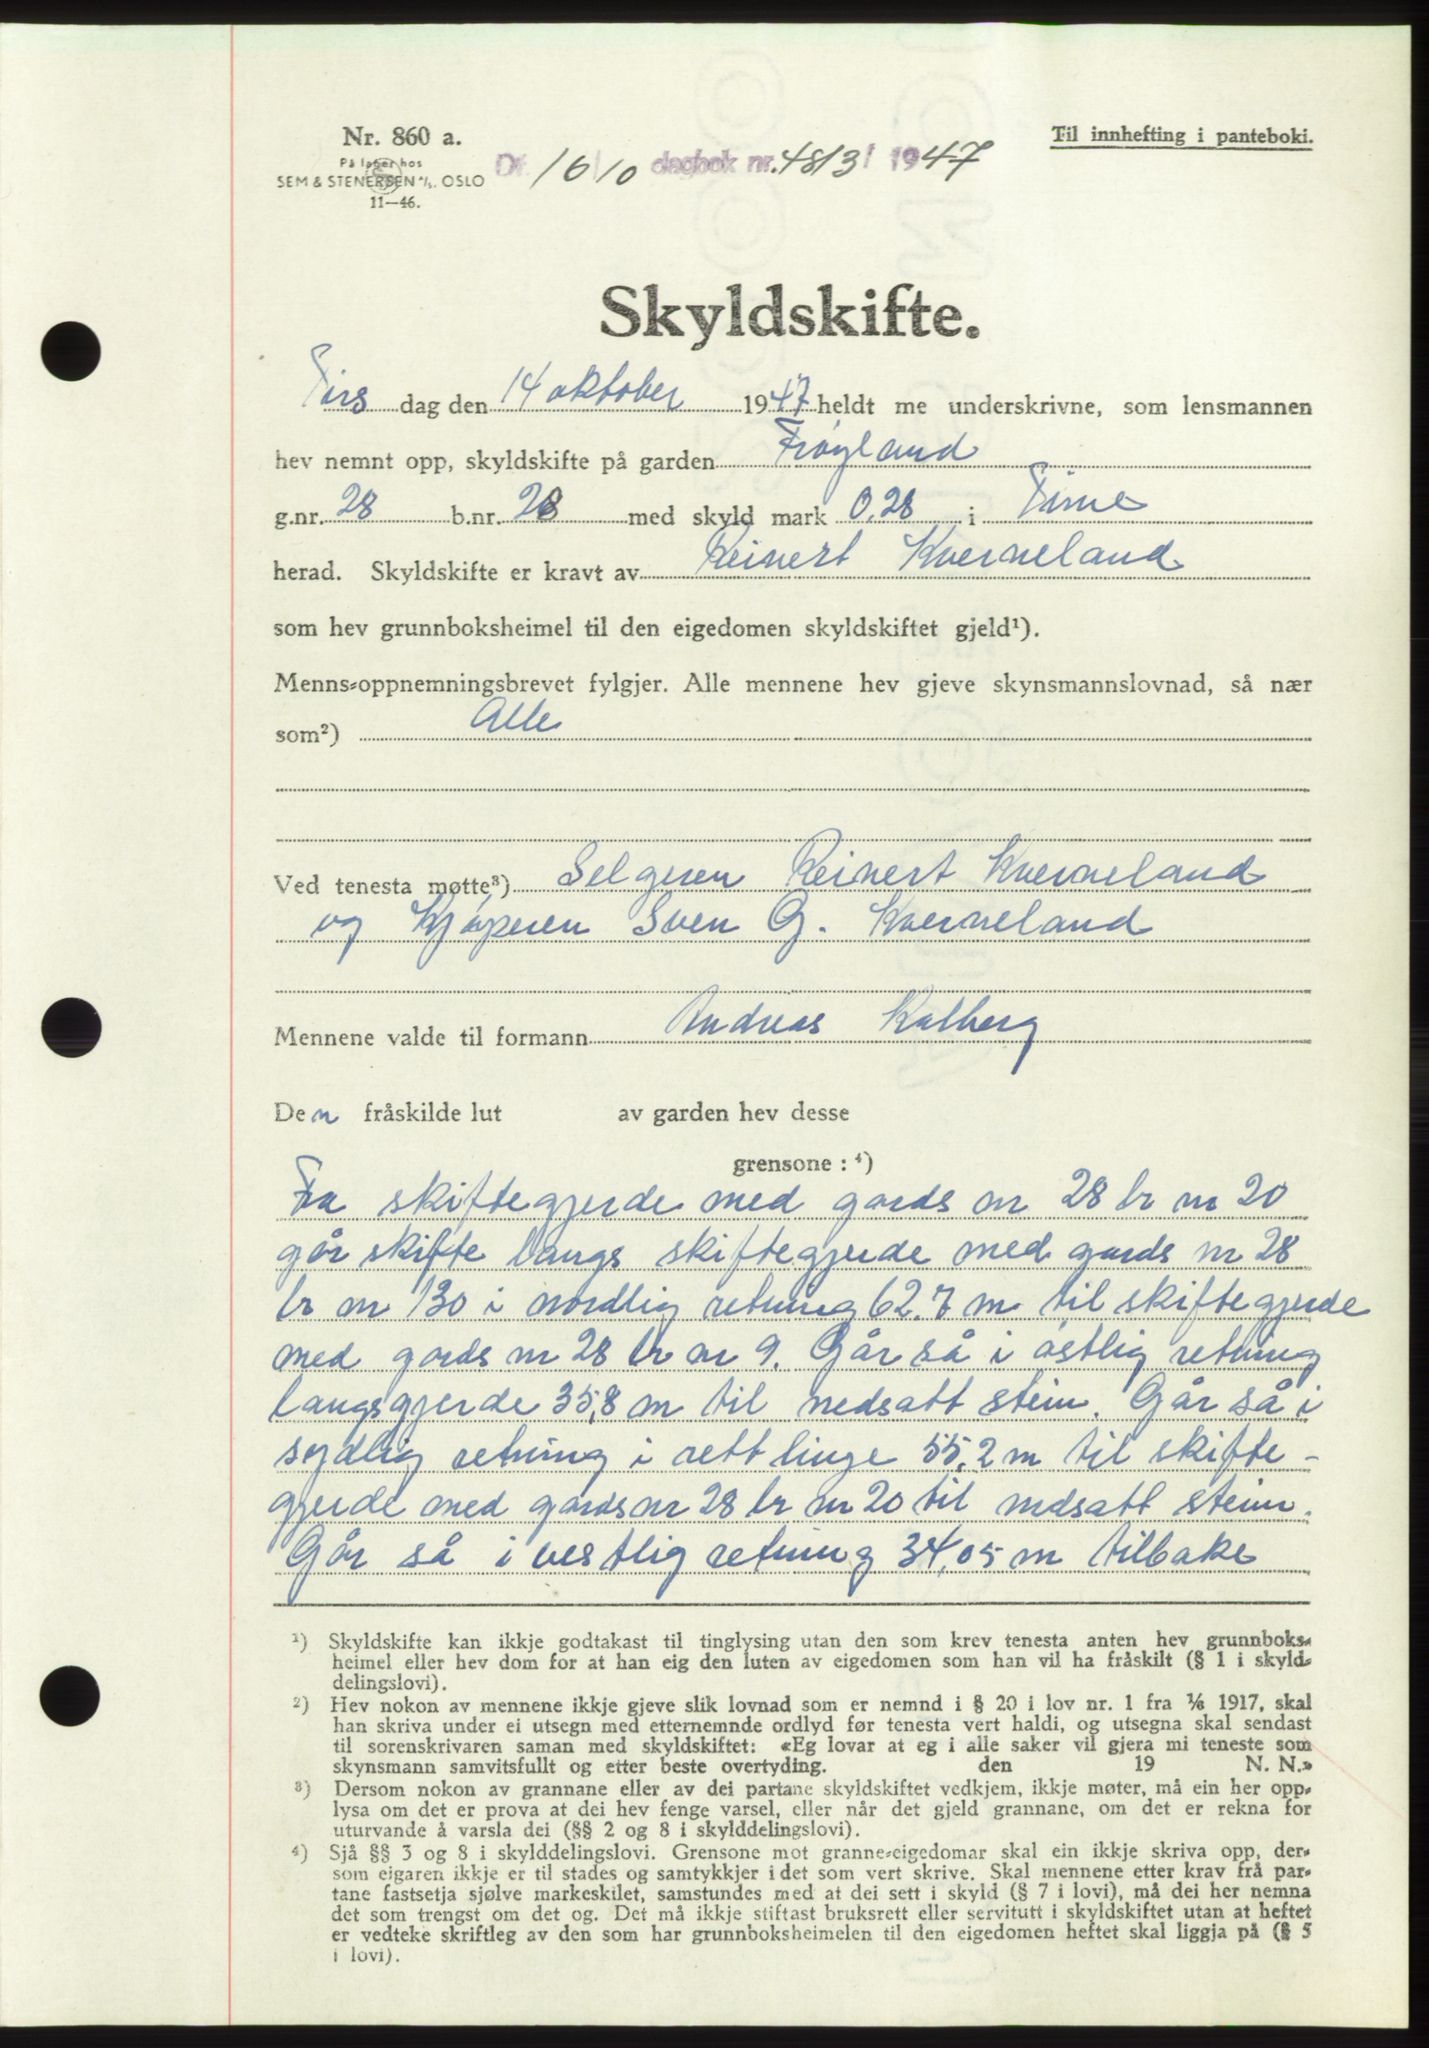 Nr. 860 a.
Til innhefting i panteboki.
På lager hos
SEM & STENERSEN A/S. OSLO
11—46.
16/10 dagbok nr. 4813/1947
Skyldskifte.
Tirs dag den 14 oktober 1947 heldt me underskrivne, som lensmannen
hev nemnt opp, skyldskifte på garden Frøyland
g.nr. 28 b.nr. med skyld mark 0,28 i Time
herad. Skyldskifte er kravt av Reinert Kverneland
som hev grunnboksheimel til den eigedomen skyldskiftet gjeld¹).
Menns-oppnemningsbrevet fylgjer. Alle mennene hev gjeve skynsmannslovnad, så nær
som²) Alle
Ved tenesta møtte³) Selgeren Reinert Kverneland
og Kjøperen Sven G. Kverneland
Mennene valde til formann Andreas Kalberg
Den fråskilde lut av garden hev desse
grensone : ⁴)
Fra skiftegjerde med gards nr 28 br nr 20
går skifte langs skiftegjerde med gards nr 28
br nr 130 i nordlig retning 62.7 m til skiftegjerde
med gards nr 28 br nr 9. Går så i østlig retning
langs gjerde 35,8 m til nedsatt stein. Går så i
sydlig retning i rett linge 55,2 m til skifte-
gjerde med gards nr 28 br nr 20 til nedsatt stein.
Går så i vestlig retning 34,05 m tilbake
¹) Skyldskifte kan ikkje godtakast til tinglysing utan den som krev tenesta anten hev grunnboks-
heimel eller hev dom for at han eig den luten av eigedomen som han vil ha fråskilt (§ 1 i skyld-
delingslovi).
²) Hev nokon av mennene ikkje gjeve slik lovnad som er nemnd i § 20 i lov nr. 1 fra 1/6 1917, skal
han skriva under ei utsegn med etternemnde ordlyd før tenesta vert haldi, og utsegna skal sendast
til sorenskrivaren saman med skyldskiftet: «Eg lovar at eg i alle saker vil gjera mi teneste som
skynsmann samvitsfullt og etter beste overtyding. den 19 N. N.»
³) Dersom nokon av grannane eller av dei partane skyldskiftet vedkjem, ikkje møter, må ein her opp-
lysa om det er prova at dei hev fenge varsel, eller når det gjeld grannane, om det er rekna for
uturvande å varsla dei (§§ 2 og 8 i skylddelingslovi).
⁴) Sjå §§ 3 og 8 i skylddelingslovi. Grensone mot granne-eigedomar skal ein ikkje skriva opp, der-
som eigaren ikkje er til stades og samtykkjer i det som vert skrive. Skal mennene etter krav frå par-
tane fastsetja sjølve markeskilet, samstundes med at dei sett i skyld (§ 7 i lovi), må dei her nemna
det som trengst om det og. Det må ikkje stiftast bruksrett eller servitutt i skyldskiftet utan at heftet
er vedteke skriftleg av den som har grunnboksheimelen til den eigedomen heftet skal liggja på (§ 5
i lovi).